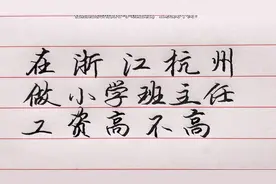 在浙江杭州
做小学班主任
工资高不高